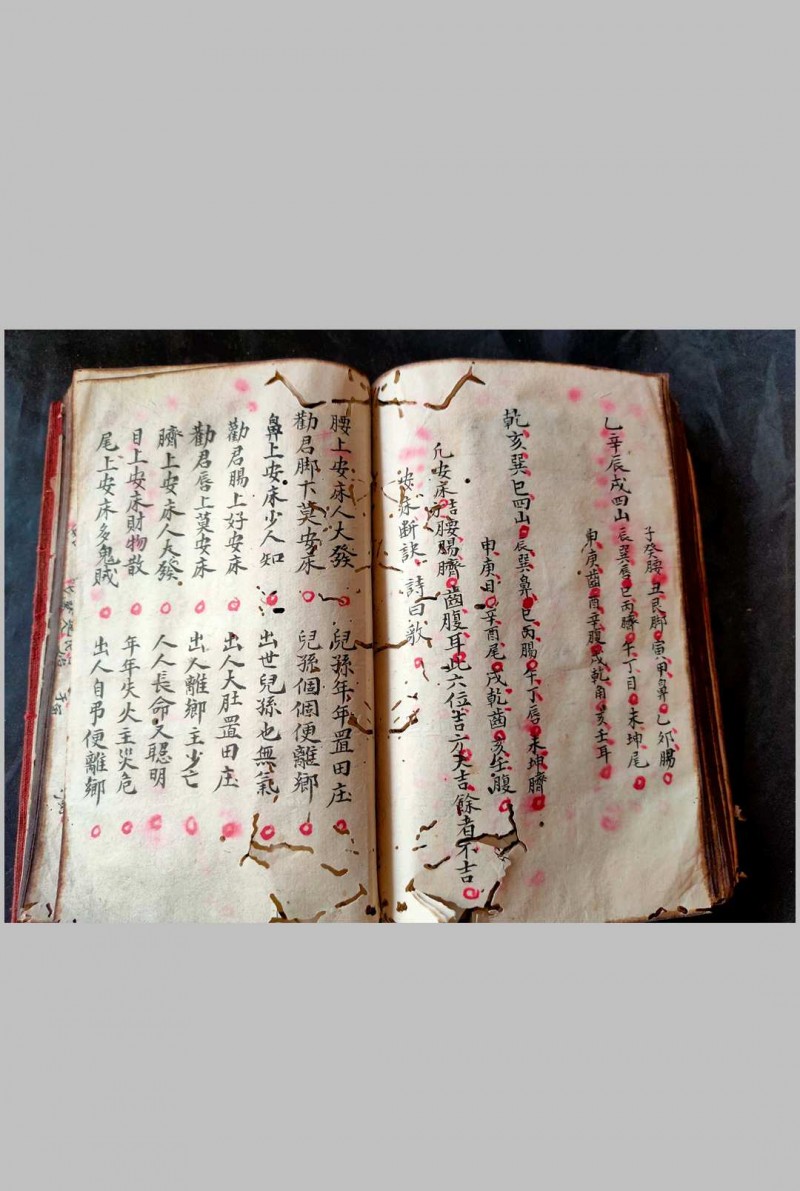 乙辛辰戌四山
子癸腰丑艮脚寅甲鼻乙卯腸
辰巽唇巳丙臍午丁目未坤尾
申庚齒酉辛腹戌乾角亥壬耳
乾亥巽巳四山
辰巽鼻巳丙腸午丁唇未坤臍
申庚目辛酉尾戌乾齒亥壬腹
凡安床方吉腰腸臍齒腹耳此六位吉方大吉餘者不吉
安床断訣詩曰歌
腰上安床人大發 兒孫年年置田庄
勸君脚下莫安床 兒孫個個便離鄉
鼻上安床少人知 出世兒孫也無氣
勸君腸上好安床 出人大肚置田庄
勸君唇上莫安床 出人離鄉主少亡
臍上安床人大發 人人長命又聰明
目上安床財物散 年年失火主災危
尾上安床多鬼賊 出人自吊便離鄉